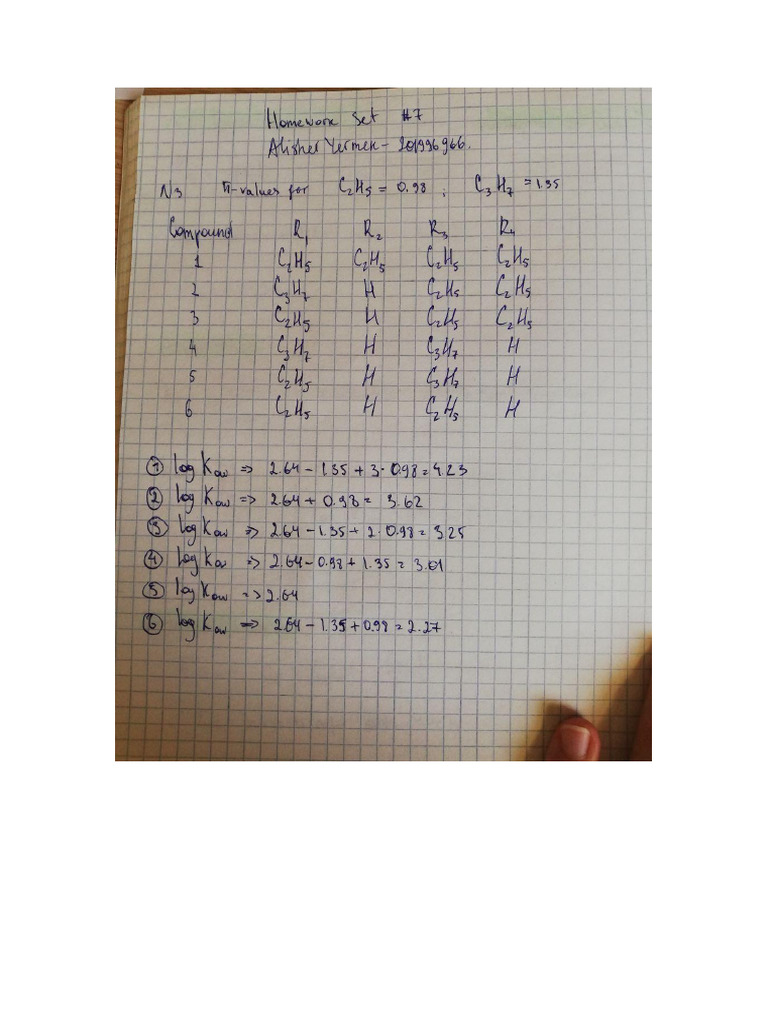 Homework Set #7
Alisher Yermek - 201996966.
N3 π-values for C₂H₅ = 0.98 ; C₃H₇ = 1.35
Compound R₁ R₂ R₃ R₄
1 C₂H₅ C₂H₅ C₂H₅ C₂H₅
2 C₃H₇ H C₂H₅ C₂H₅
3 C₂H₅ H C₂H₅ C₂H₅
4 C₃H₇ H C₃H₇ H
5 C₂H₅ H C₃H₇ H
6 C₂H₅ H C₂H₅ H
① log Kow => 2.64 - 1.35 + 3·0.98 = 4.23
② log Kow => 2.64 + 0.98 = 3.62
③ log Kow => 2.64 - 1.35 + 2·0.98 = 3.25
④ log Kow => 2.64 - 0.98 + 1.35 = 3.01
⑤ log Kow => 2.64
⑥ log Kow => 2.64 - 1.35 + 0.98 = 2.27